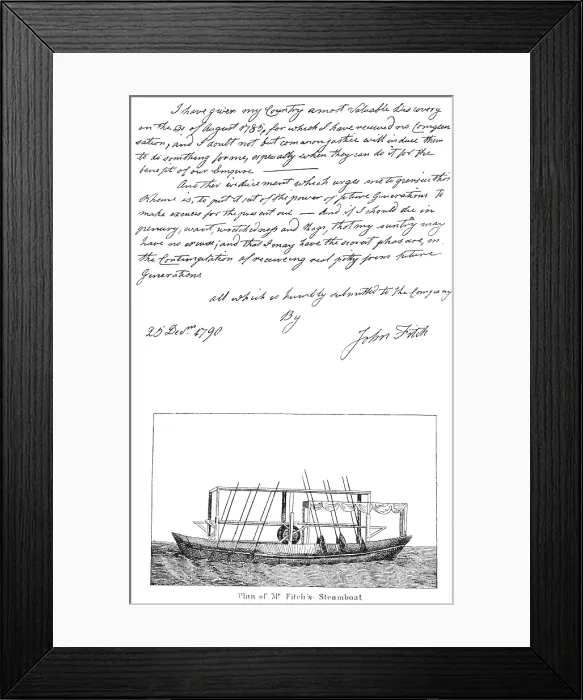 I have given my Country a most Valuable discovery
on the 30 of August 1785, for which I have receved no Compen
sation, and I doubt not but common justice will induce them
to do somthing for me, espesually when they can do it for the
benefit of our Empire
Another inducement which urges me to pursue this
Skheme is, to put it out of the power of future Generations to
make excuses for the present one — And if I should die in
penury, want, wretchedness and Rags, that my Cuntry may
have no excuse; and that I may have the secret pleasure, in
the Contemplation of receiveing real pitty from future
Generations
all which is humbly submitted to the Company
By
25 Decm 1790 John Fitch
Plan of Mr Fitch's Steamboat